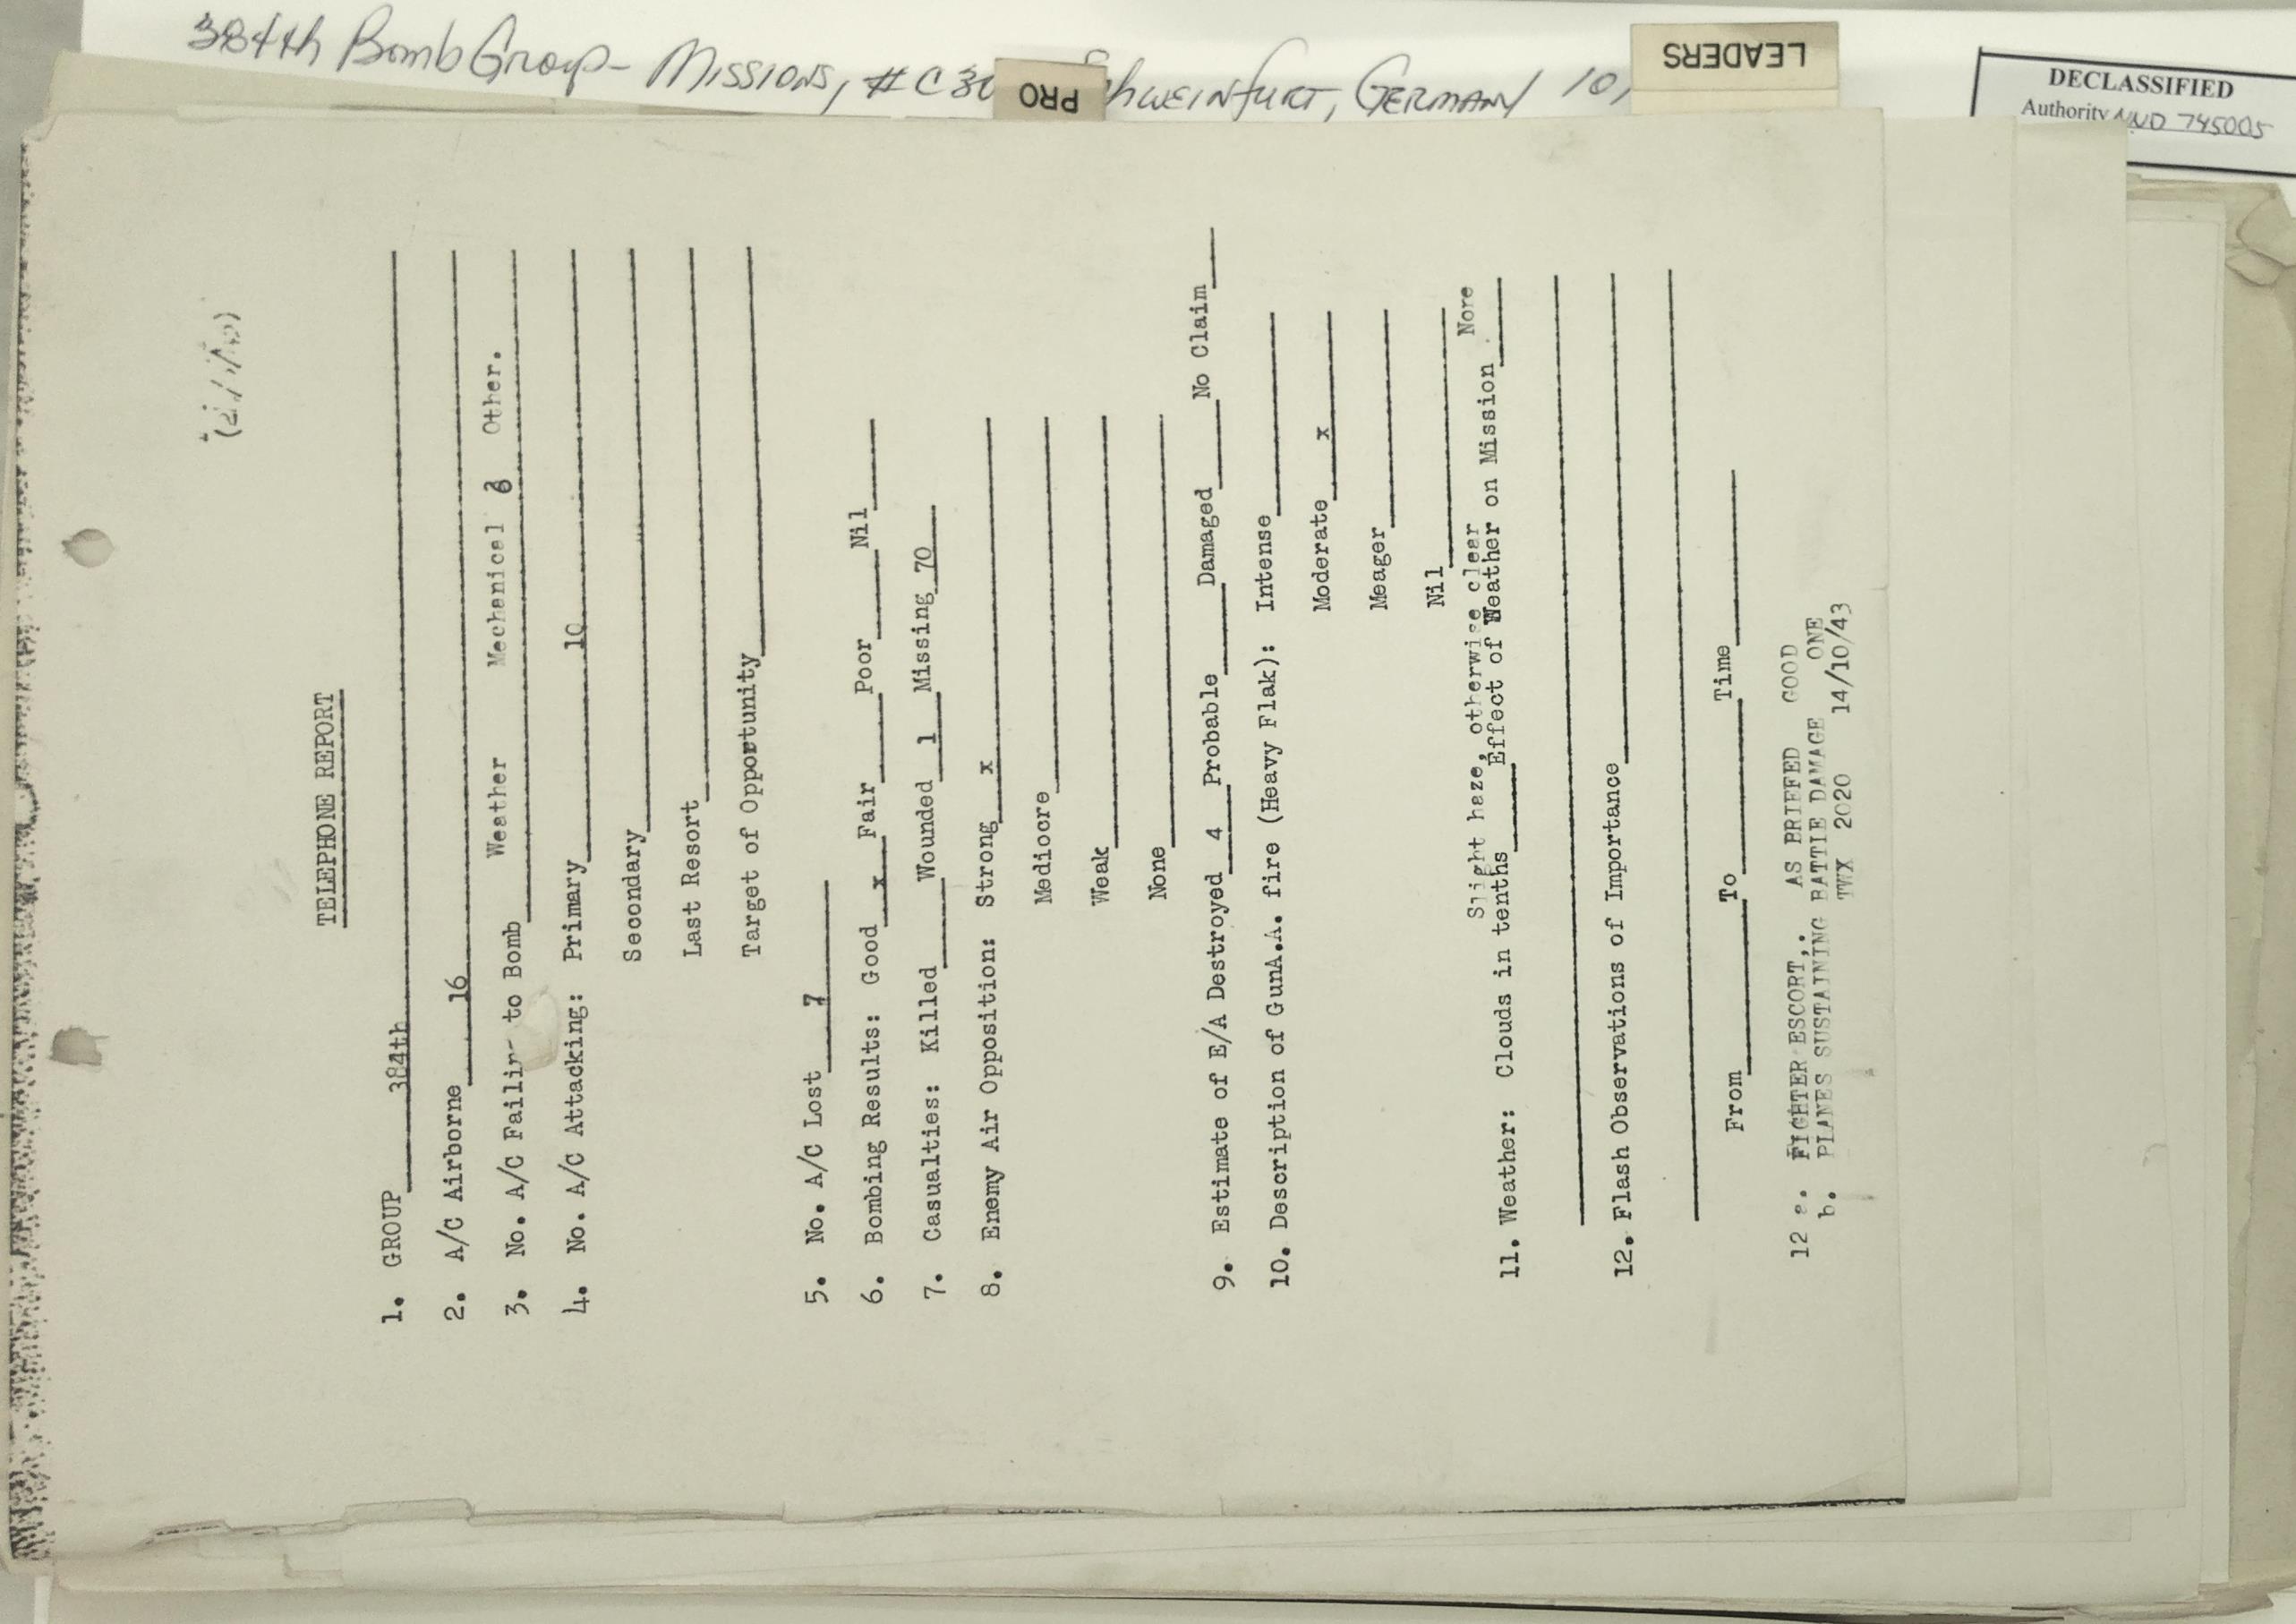 384th Bomb Group - Missions, #C30
Schweinfurt, Germany 10,
PRO
LEADERS
DECLASSIFIED
Authority NND 745005
TELEPHONE REPORT
1. GROUP 384th
2. A/C Airborne 16
3. No. A/C Failing to Bomb Weather Mechanical Other.
4. No. A/C Attacking: Primary 10
Secondary
Last Resort
Target of Opportunity
5. No. A/C Lost 7
6. Bombing Results: Good x Fair Poor Nil
7. Casualties: Killed Wounded 1 Missing 70
8. Enemy Air Opposition: Strong x
Mediocre
Weak
None
9. Estimate of E/A Destroyed 4 Probable Damaged No Claim
10. Description of GunA.A. fire (Heavy Flak): Intense
Moderate x
Meager
Nil
Slight haze, otherwise clear None
11. Weather: Clouds in tenths Effect of Weather on Mission
12. Flash Observations of Importance
From To Time
12 a. FIGHTER ESCORT,. AS BRIEFED GOOD
b. PLANES SUSTAINING BATTLE DAMAGE ONE
TWX 2020 14/10/43